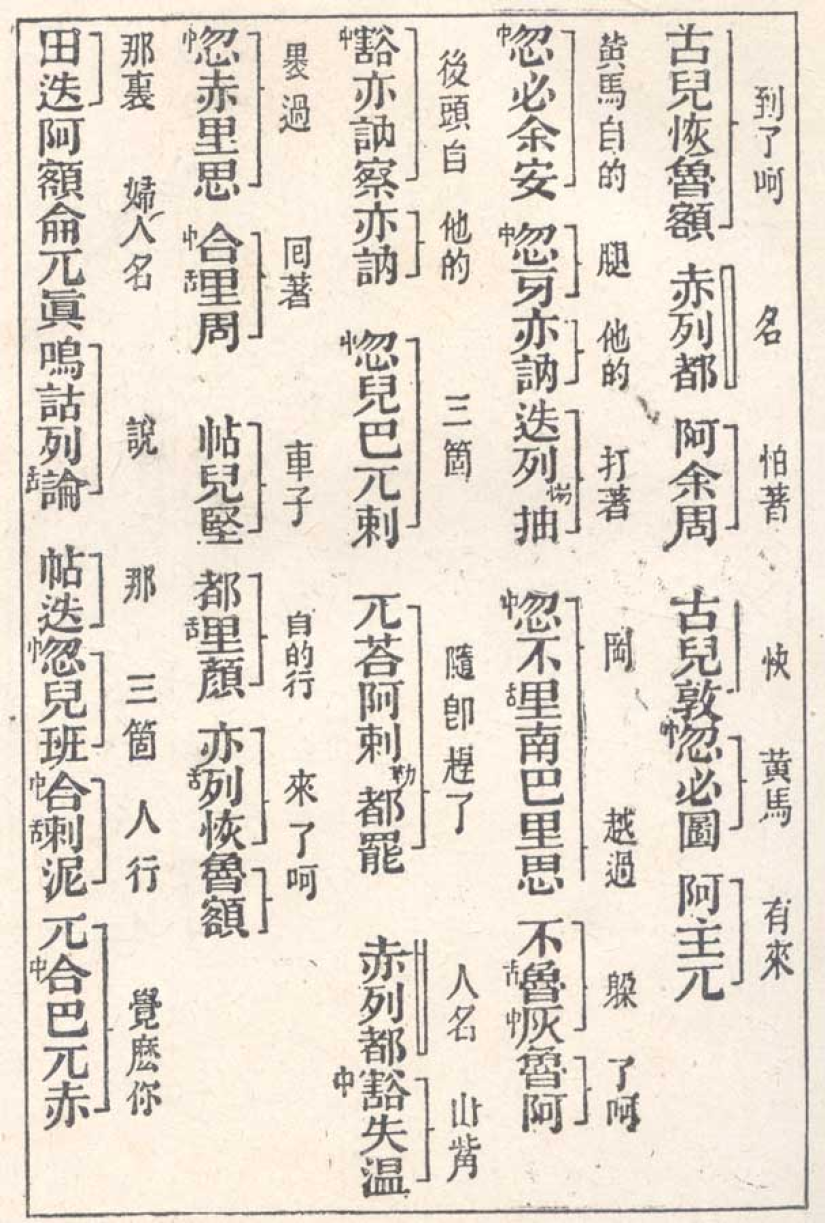 到了呵 名 怕著 快 黃馬 有來
古兒恢魯額 赤列都 阿余周 古兒敦中忽必圖 阿主兀
黃馬自的 腿 他的 打著 岡 越過 躱 了呵
中忽必余安 中忽牙亦訥 迭列惕抽 中忽不舌里南巴里思 不舌魯中灰魯阿
後頭自 他的 三箇 隨卽趕了 人名 山觜
中豁亦訥察亦訥 中忽兒巴兀剌 兀荅阿剌勒都罷 赤列都中豁失温
過 囘著 車子 自的行 來了呵
中忽赤里思 中合舌里周 帖兒堅 都舌里顏 亦舌列恢魯額
那裏 婦人名 說 那 三箇 人行 覺麽你
田迭阿額侖兀眞嗚詁列舌論 帖迭中忽兒班中合舌剌泥 兀中合巴兀赤